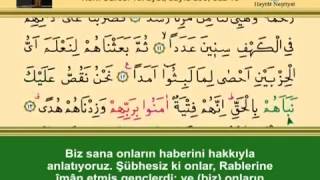 Hayrât Neşriyat
فِي الْكَهْفِ سِنِينَ عَدَدًا ﴿١١﴾ ثُمَّ بَعَثْنَاهُمْ لِنَعْلَمَ اَيُّ
الْحِزْبَيْنِ اَحْصٰى لِمَا لَبِثُٓوا اَمَدًا ﴿١٢﴾ نَحْنُ نَقُصُّ عَلَيْكَ
نَبَاَهُمْ بِالْحَقِّ اِنَّهُمْ فِتْيَةٌ اٰمَنُوا بِرَبِّهِمْ وَزِدْنَاهُمْ هُدًى ﴿١٣﴾
Biz sana onların haberini hakkıyla
anlatıyoruz. Şübhesiz ki onlar, Rablerine
îmân etmiş gençlerdi; ve (biz) onların